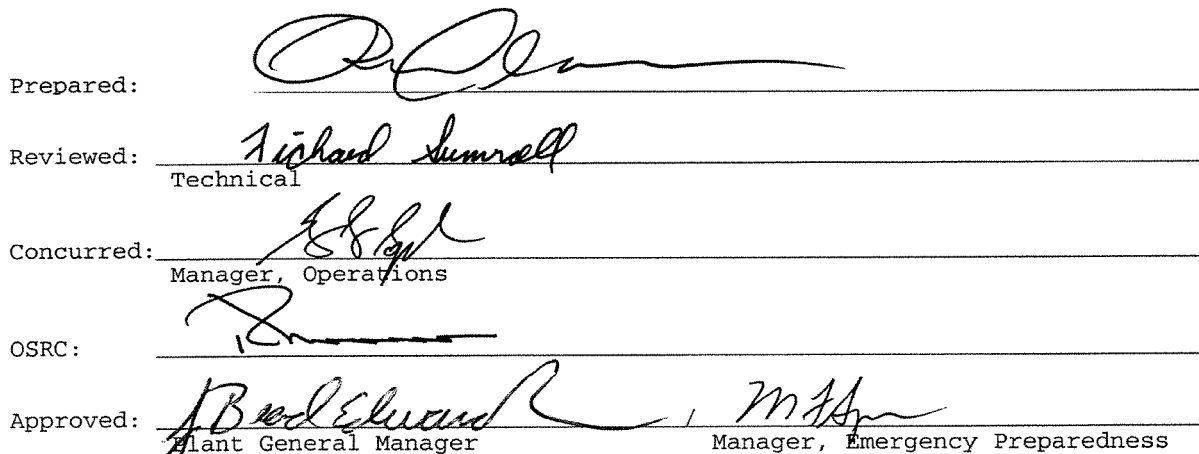 Prepared:
Reviewed: Richard Sumrall
Technical
Concurred:
Manager, Operations
OSRC:
Approved: Brad Edward ,
Plant General Manager Manager, Emergency Preparedness